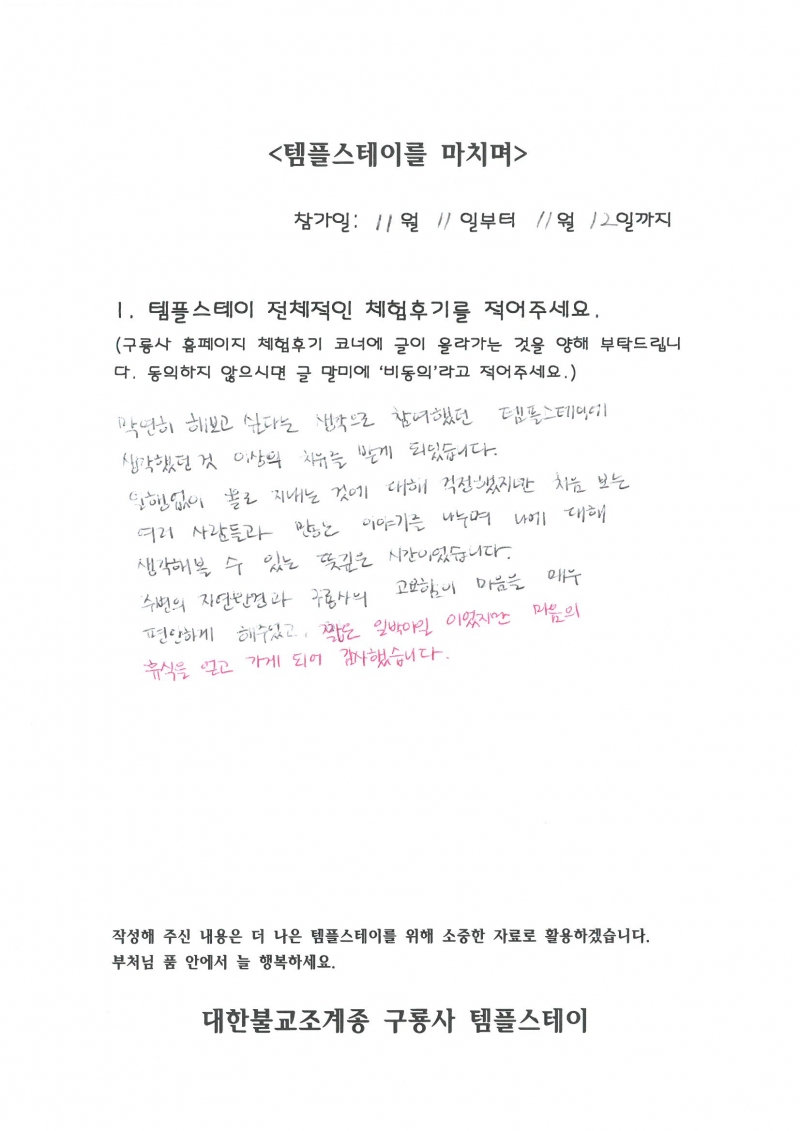 <템플스테이를 마치며>
참가일: 11월 11일부터 11월 12일까지
1. 템플스테이 전체적인 체험후기를 적어주세요.
(구룡사 홈페이지 체험후기 코너에 글이 올라가는 것을 양해 부탁드립니
다. 동의하지 않으시면 글 말미에 '비동의'라고 적어주세요.)
막연히 해보고 싶다는 생각으로 참여했던 템플스테이에
생각했던 것 이상의 치유를 받게 되었습니다.
일행없이 홀로 지내는 것에 대해 걱정했지만 처음 보는
여러 사람들과 많은 이야기를 나누며 나에 대해
생각해볼 수 있는 뜻깊은 시간이었습니다.
주변의 자연환경과 구룡사의 고요함이 마음을 매우
편안하게 해주었고, 짧은 일박이일 이었지만 마음의
휴식을 얻고 가게 되어 감사했습니다.
작성해 주신 내용은 더 나은 템플스테이를 위해 소중한 자료로 활용하겠습니다.
부처님 품 안에서 늘 행복하세요.
대한불교조계종 구룡사 템플스테이